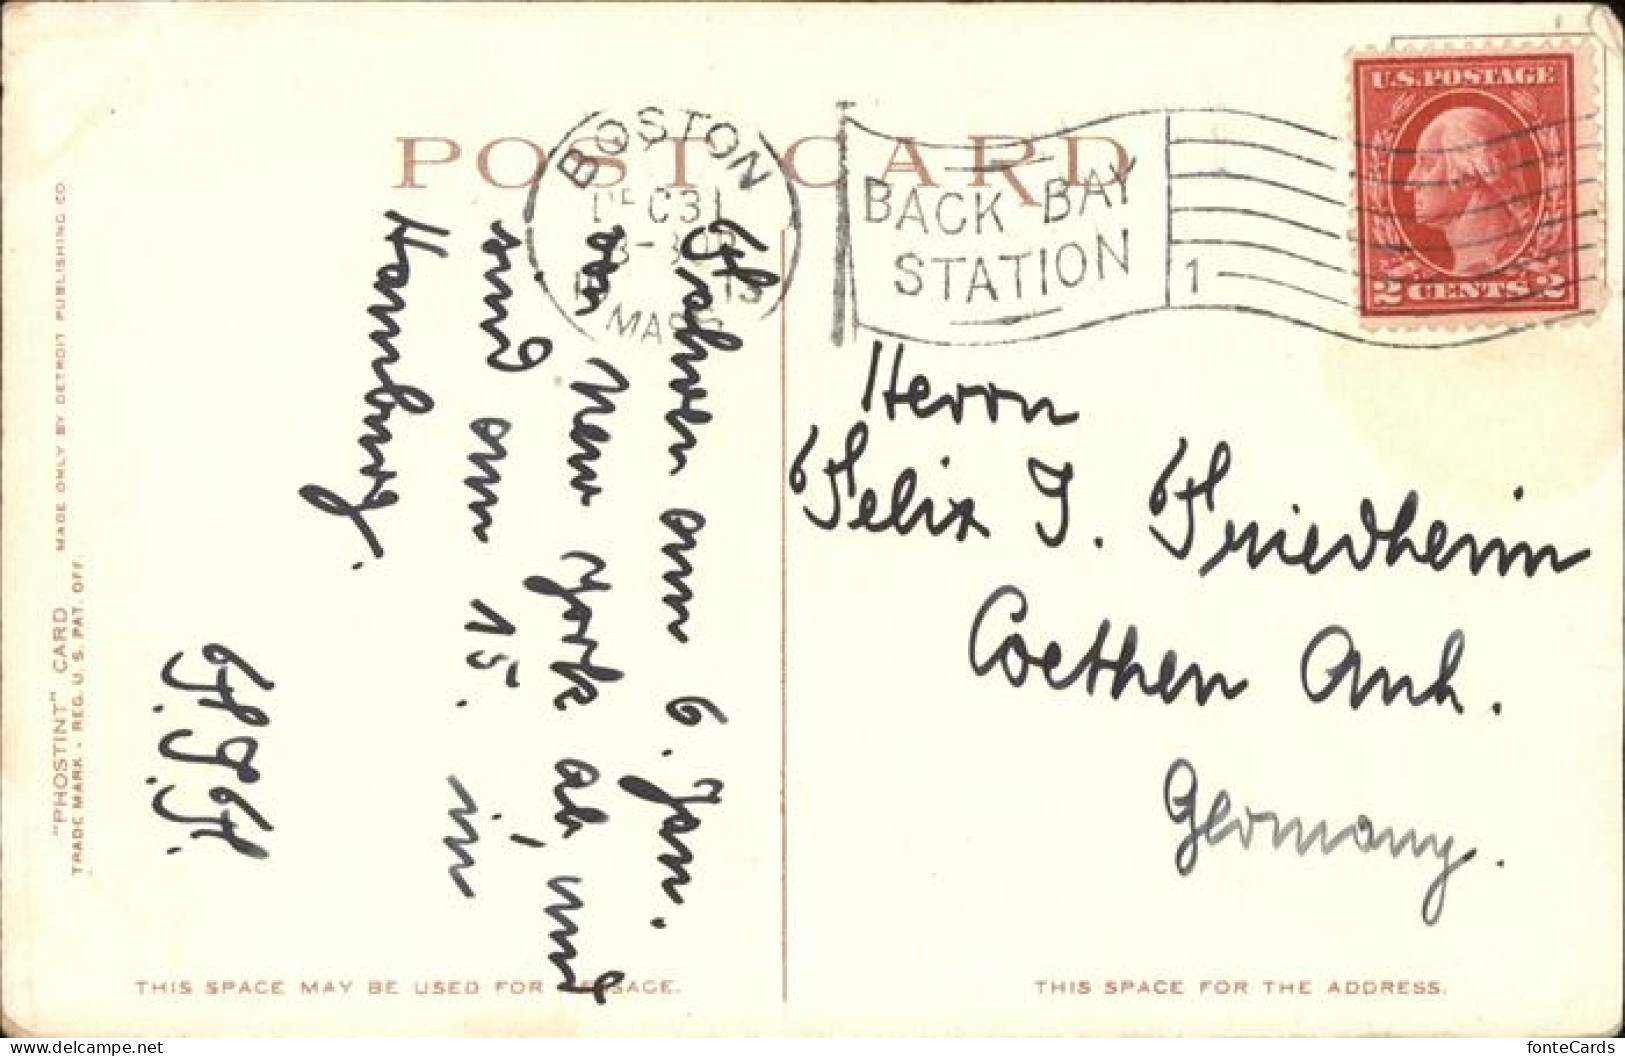 POST CARD
BOSTON
DEC 31
MASS
BACK BAY
STATION
1
U.S. POSTAGE
2 CENTS 2
Fahren am 6. Jan.
von New York ab, und
sind am 15. in
Hamburg.
F. J. F.
Herrn
Felix J. Friedheim
Coethen Anh.
Germany.
"PHOSTINT" CARD MADE ONLY BY DETROIT PUBLISHING CO.
TRADE MARK - REG. U. S. PAT. OFF.
THIS SPACE MAY BE USED FOR MESSAGE.
THIS SPACE FOR THE ADDRESS.
https://www.delcampe.net
fonteCards